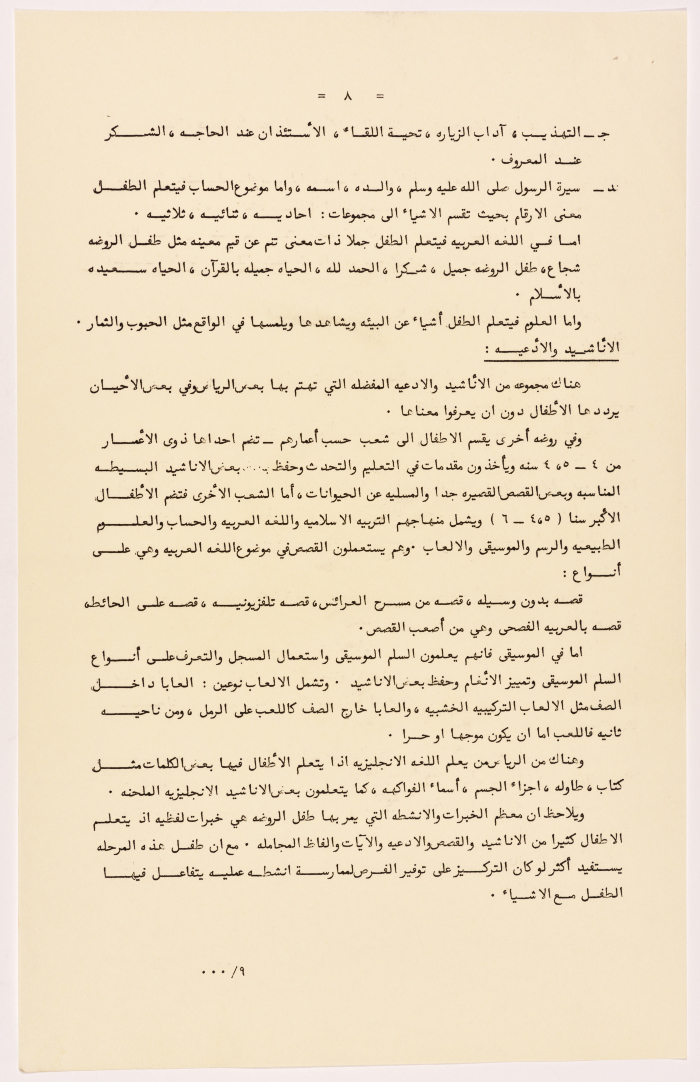 = ٨ =
جـ ـ التهذيب ، آداب الزياره ، تحية اللقاء ، الأستئذان عند الحاجه ، الشكر
عند المعروف .
د ـ سيرة الرسول صلى الله عليه وسلم ، والده ، اسمه ، واما موضوع الحساب فيتعلم الطفل
معنى الارقام بحيث تقسم الاشياء الى مجموعات : احاديه ، ثنائيه ، ثلاثيه .
اما في اللغه العربيه فيتعلم الطفل جملا ذات معنى تنم عن قيم معينه مثل طفل الروضه
شجاع ، طفل الروضه جميل ، شكرا ، الحمد لله ، الحياه جميله بالقرآن ، الحياه سعيده
بالأسلام .
واما العلوم فيتعلم الطفل أشياء عن البيئه ويشاهدها ويلمسها في الواقع مثل الحبوب والثمار .
الأناشيد والأدعيه :
هناك مجموعه من الأناشيد والادعيه المفضله التي تهتم بها بعض الرياض وفي بعض الأحيان
يرددها الأطفال دون ان يعرفوا معناها .
وفي روضه أخرى يقسم الاطفال الى شعب حسب أعمارهم ـ تضم احداها ذوى الأعمار
من ٤ ـ ٤،٥ سنه ويأخذون مقدمات في التعليم والتحدث وحفظ بعض الاناشيد البسيطه
المناسبه وبعض القصص القصيره جدا والمسليه عن الحيوانات ، أما الشعب الأخرى فتضم الأطفال
الأكبر سنا ( ٤،٥ ـ ٦ ) ويشمل منهاجهم التربيه الاسلاميه واللغه العربيه والحساب والعلوم
الطبيعيه والرسم والموسيقى والالعاب . وهم يستعملون القصص في موضوع اللغه العربيه وهي على
أنواع :
قصه بدون وسيله ، قصه من مسرح العرائس ، قصه تلفزيونيه ، قصه على الحائط ،
قصه بالعربيه الفصحى وهي من أصعب القصص .
اما في الموسيقى فانهم يعلمون السلم الموسيقى واستعمال المسجل والتعرف على أنواع
السلم الموسيقى وتمييز الانغام وحفظ بعض الاناشيد . وتشمل الالعاب نوعين : العابا داخل
الصف مثل الالعاب التركيبيه الخشبيه ، والعابا خارج الصف كاللعب على الرمل ، ومن ناحيه
ثانيه فاللعب اما ان يكون موجها او حرا .
وهناك من الرياض من يعلم اللغه الانجليزيه اذ ا يتعلم الأطفال فيها بعض الكلمات مثل
كتاب ، طاوله ، اجزاء الجسم ، أسماء الفواكه ، كما يتعلمون بعض الاناشيد الانجليزيه الملحنه .
ويلاحظ ان معظم الخبرات والانشطه التي يمر بها طفل الروضه هي خبرات لفظيه اذ يتعلم
الاطفال كثيرا من الاناشيد والقصص والادعيه والآيات والفاظ المجامله . مع ان طفل هذه المرحله
يستفيد أكثر لو كان التركيز على توفير الفرص لممارسة انشطه عمليه يتفاعل فيها
الطفل مع الاشياء .
٩/ ...